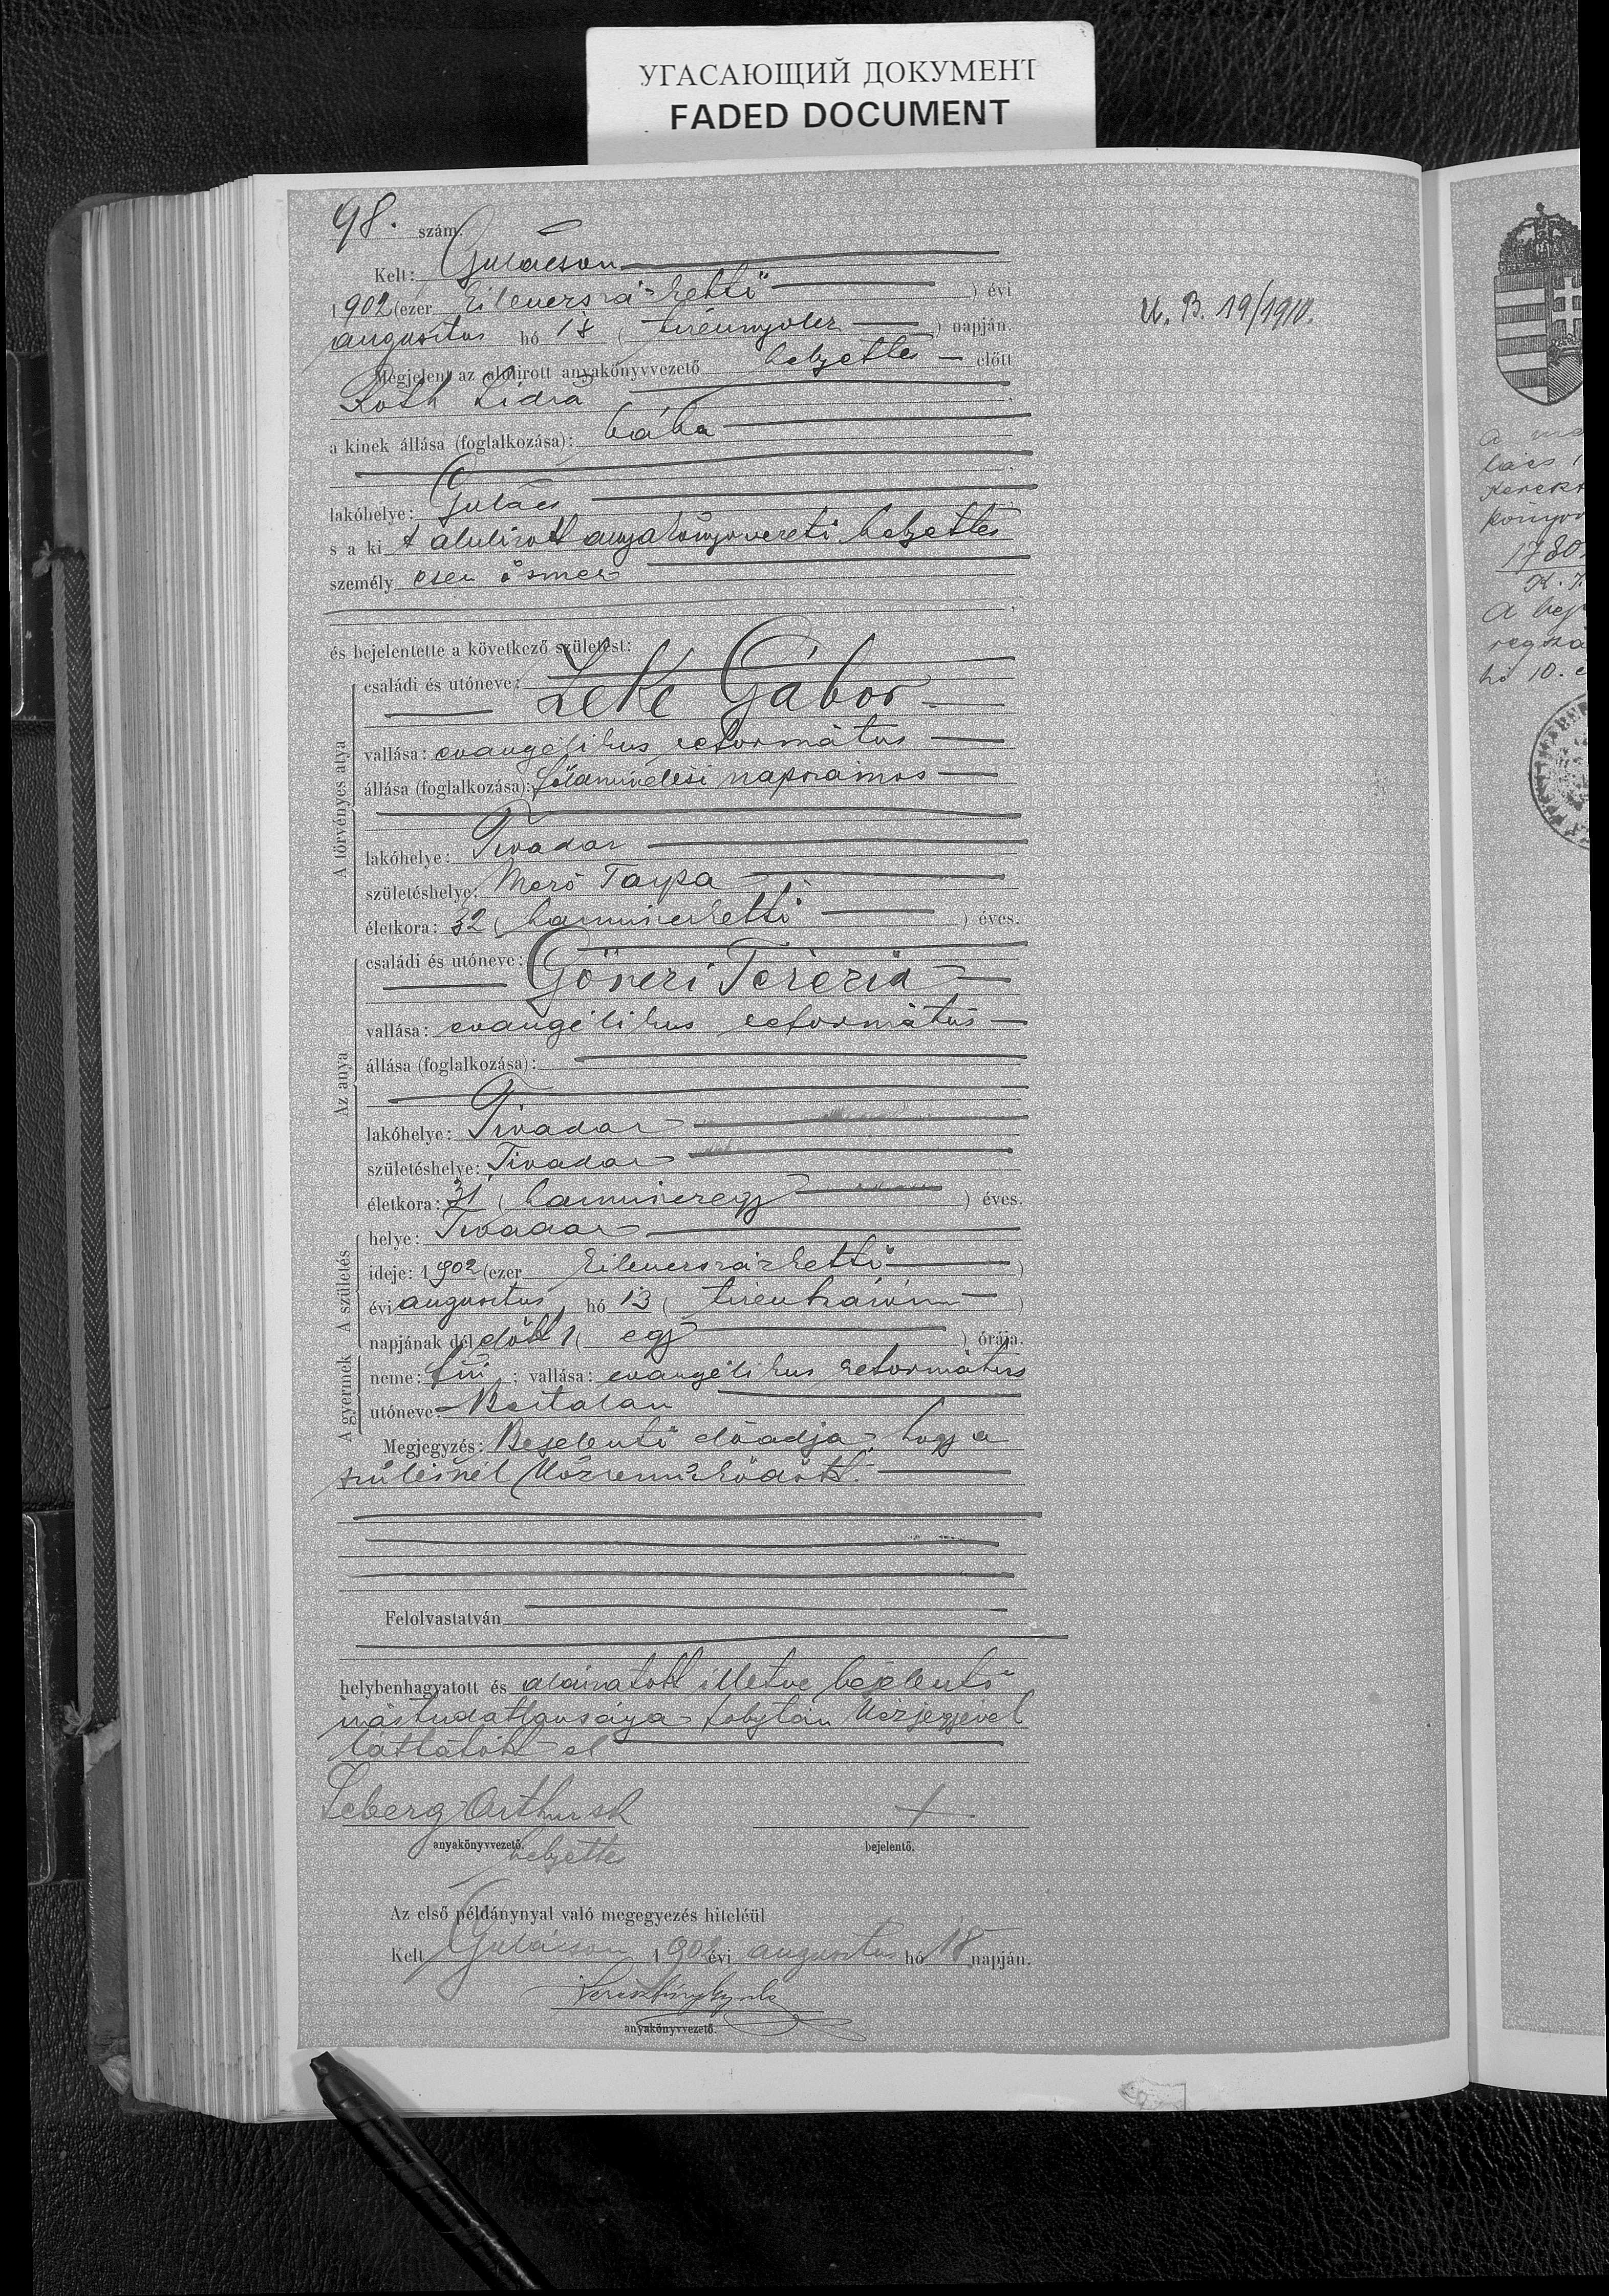 УГАСАЮЩИЙ ДОКУМЕНТ
FADED DOCUMENT
98. szám.
Kelt: Gulácson
1902 (ezer kilenczszázkettő ) évi
augusztus hó 18 ( tizennyolcz ) napján
Megjelent az alulirott anyakönyvvezető helyettes előtt
Róth Lidia
a kinek állása (foglalkozása): bába
lakóhelye: Gulács
s a ki t alulirott anyakönyvvezető helyettes
személy esen ösmer
és bejelentette a következő születést:
A törvényes atya
családi és utóneve:
Zeke Gábor
vallása: evangélikus református
állása (foglalkozása): földmivelési napszámos
lakóhelye: Tivadar
születéshelye: Mező Tarpa
életkora: 32 ( harminczkettő ) éves.
Az anya
családi és utóneve:
Gönczi Terézia
vallása: evangélikus református
állása (foglalkozása):
lakóhelye: Tivadar
születéshelye: Tivadar
életkora: 31 ( harminczegy ) éves.
A születés
helye: Tivadar
ideje: 1902 (ezer kilenczszázkettő )
évi augusztus hó 13 ( tizenhárom )
napjának dél előtt 1 ( egy ) órája.
A gyermek
neme: fiú ; vallása: evangélikus református
utóneve: Bertalan
Megjegyzés: Bejelentő előadja, hogy a
szülésnél közreműködött.
Felolvastatván
helybenhagyatott és aláiratott illetve bejelentő
irástudatlansága folytán kézjegyével
láttatott el
Leberg Arthur sk
anyakönyvvezető.
helyettes
+
bejelentő.
Az első példánynyal való megegyezés hiteléül
Kelt Gulácson 1902 évi augusztus hó 18 napján.
anyakönyvvezető.
U. B. 19/1910.
lács
könyv
1780
A bej
hó 10.